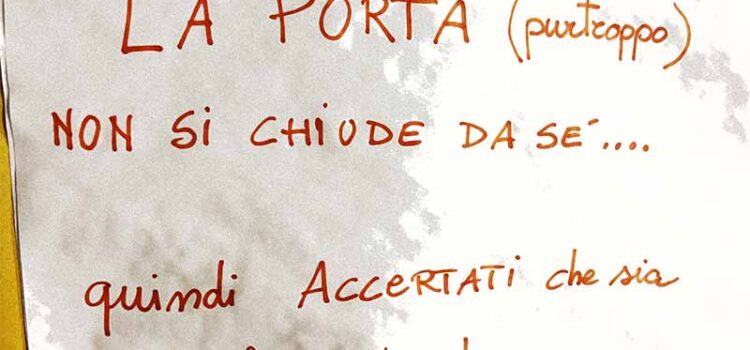 LA PORTA (purtroppo)
NON Si CHiUDE DA SÉ....
quindi ACCERTATi che sia